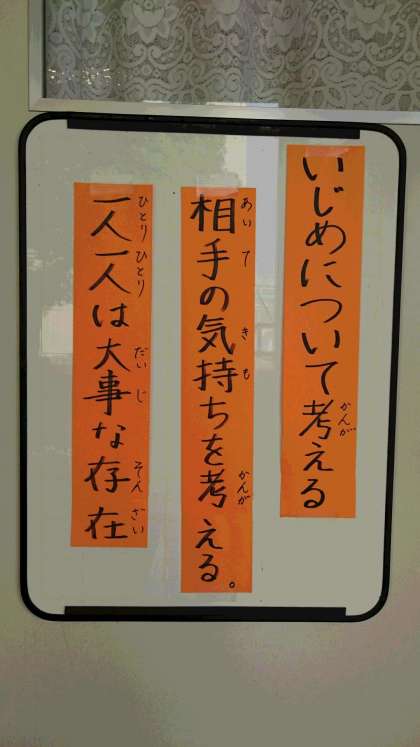 いじめについて考える
かんが
相手の気持ちを考える。
あいて きも かんが
一人一人は大事な存在
ひとり ひとり だいじ そんざい